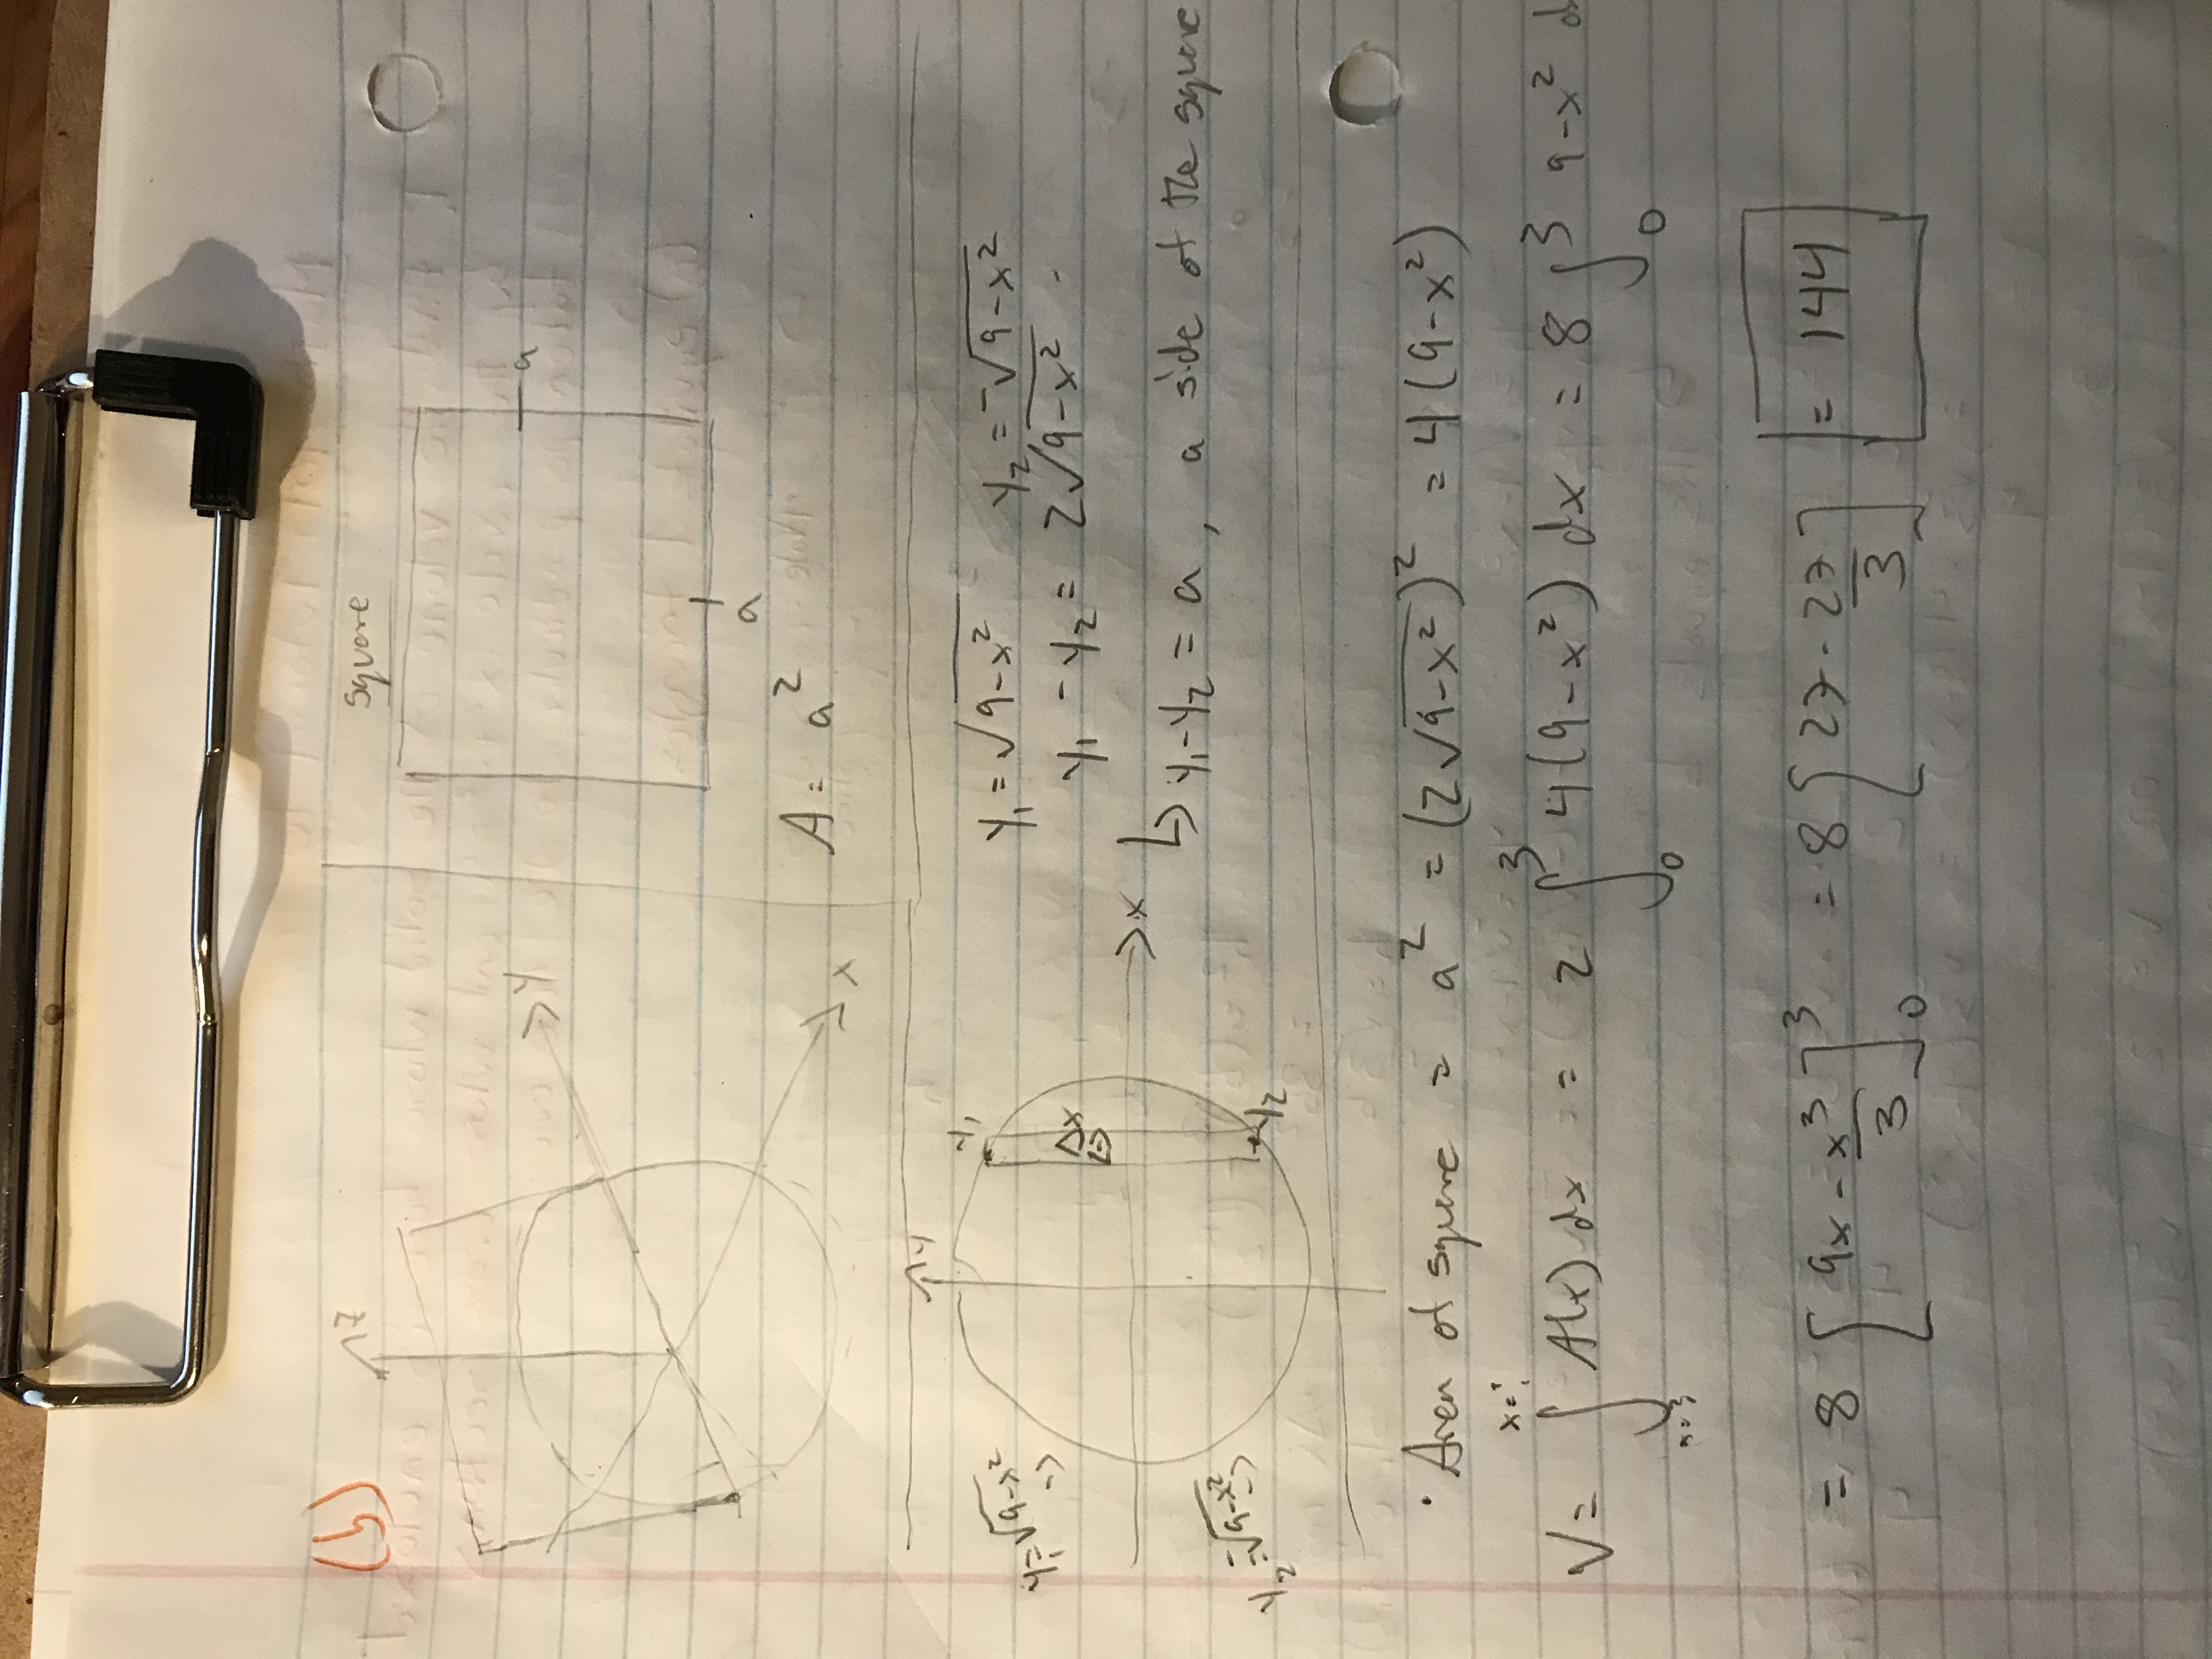 (b)
z
y
x
square
a
a
A = a²
y
y₁
y₁=√9-x²
Δx
x
y₂=-√9-x²
y₂
y₁ = √9-x² y₂ = -√9-x²
y₁ - y₂ = 2√9-x²
↳ y₁-y₂ = a, a side of the square
· Area of square = a² = (2√9-x²)² = 4(9-x²)
V = ∫ A(x) dx = 2 ∫₀³ 4(9-x²) dx = 8 ∫₀³ 9-x² d
= 8 [9x - x³/3]₀³ = 8 [27 - 27/3] = 144